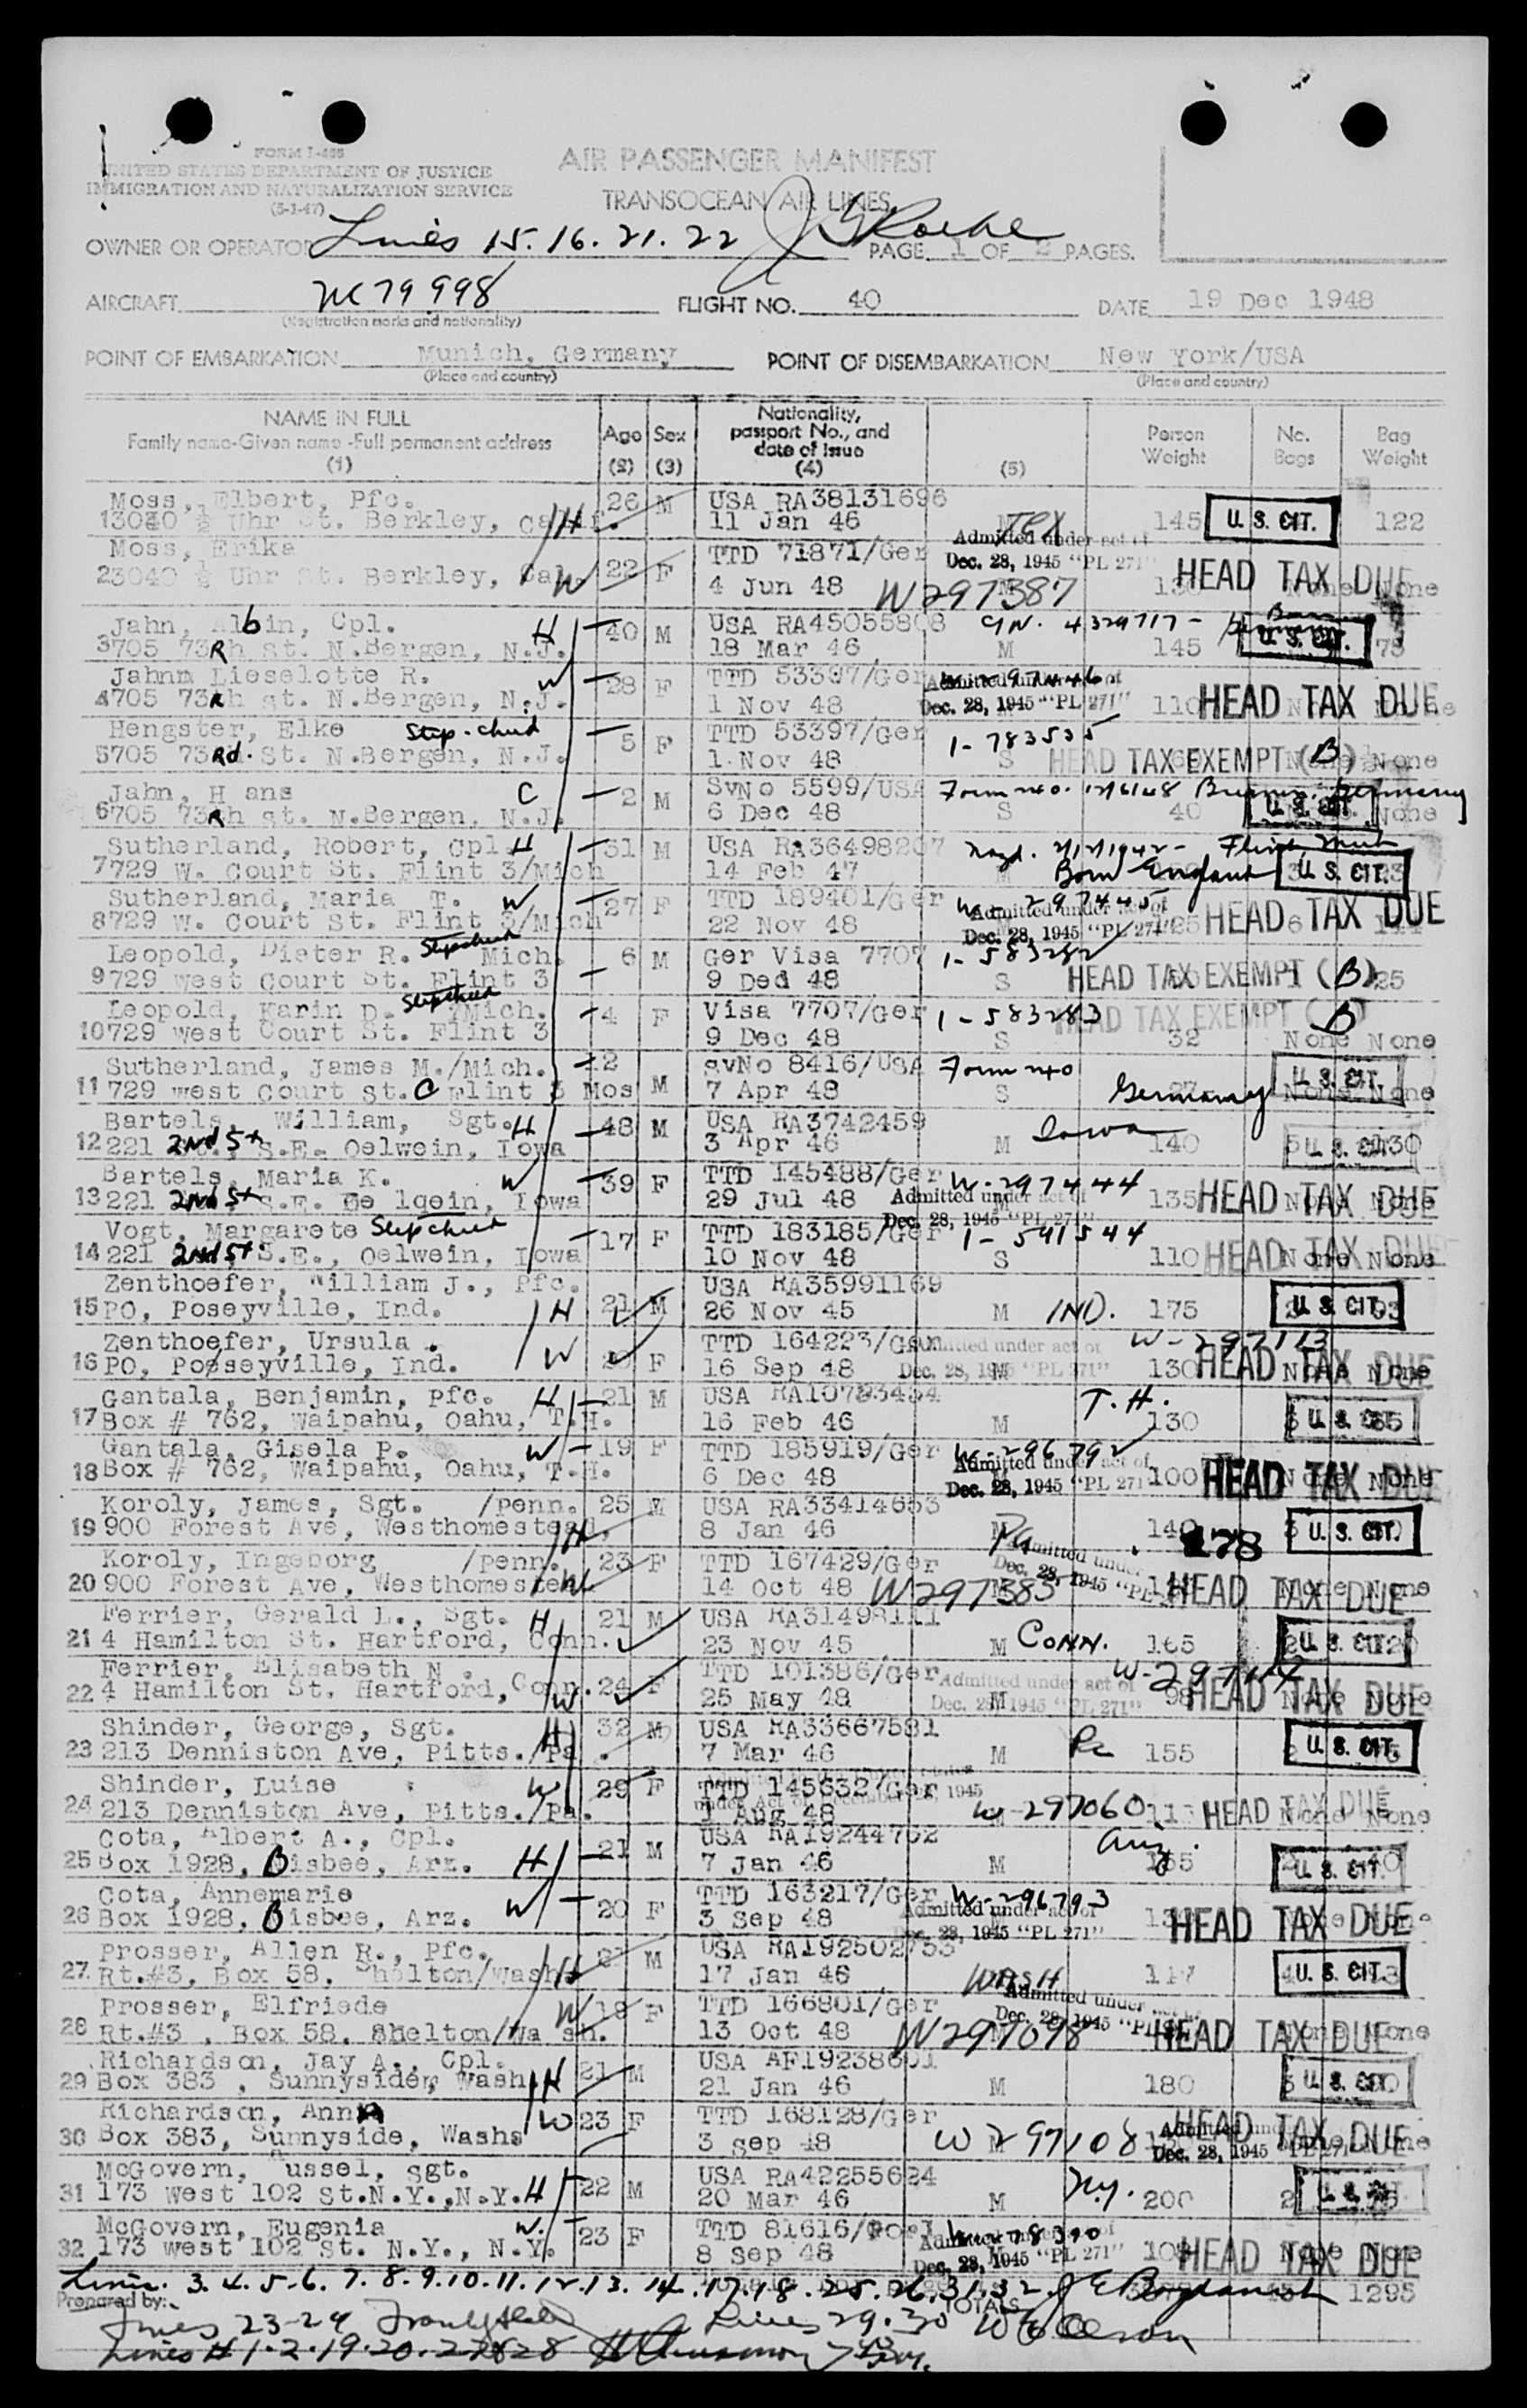 FORM I-466
UNITED STATES DEPARTMENT OF JUSTICE
IMMIGRATION AND NATURALIZATION SERVICE
(5-1-47)
AIR PASSENGER MANIFEST
TRANSOCEAN AIR LINES
OWNER OR OPERATOR Lines 15. 16. 21. 22
PAGE 1 OF 2 PAGES.
AIRCRAFT NC79998 FLIGHT NO. 40 DATE 19 Dec 1948
(Registration marks and nationality)
POINT OF EMBARKATION Munich, Germany POINT OF DISEMBARKATION New York/USA
(Place and country) (Place and country)
NAME IN FULL Age Sex Nationality, passport No., and date of issue Person Weight No. Bags Bag Weight
Family name-Given name-Full permanent address
(1) (2) (3) (4) (5)
Moss, Elbert, Pfc. H 26 M USA RA38131696
1 3040 ½ Uhr St. Berkley, Calif. 11 Jan 46 Tex 145 U. S. CIT. 122
Moss, Erika W 22 F TTD 71871/Ger Admitted under act of Dec. 28, 1945 "PL 271"
2 3040 ½ Uhr St. Berkley, Cal. 4 Jun 48 W297387 HEAD TAX DUE None None
Jahn, Albin, Cpl. H 40 M USA RA45055808 CN. 4329717
3 705 73R St. N.Bergen, N.J. 18 Mar 46 M 145 U. S. CIT. 73
Jahnm Lieselotte R. W 28 F TTD 53397/Ger Admitted under act of
4 705 73R st. N.Bergen, N.J. 1 Nov 48 Dec. 28, 1945 "PL 271" 110 HEAD TAX DUE
Hengster, Elke Step-child 5 F TTD 53397/Ger 1-783535
5 705 73Rd. St. N.Bergen, N.J. 1 Nov 48 S HEAD TAX EXEMPT (B) None None
Jahn, H ans C 2 M SvNo 5599/USA Form 240. Bremen, Germany
6 705 73R st. N.Bergen, N.J. 6 Dec 48 S 40 U. S. CIT. None
Sutherland, Robert, Cpl. H 31 M USA RA36498207 Flint Mich
7 729 W. Court St. Flint 3/Mich 14 Feb 47 Born England U. S. CIT.
Sutherland, Maria T. W 27 F TTD 189401/Ger W-297445
8 729 W. Court St. Flint 3/Mich 22 Nov 48 Admitted under act of Dec. 28, 1945 "PL 271" HEAD TAX DUE
Leopold, Dieter R. Stepchild Mich. 6 M Ger Visa 7707 1-583282
9 729 West Court St. Flint 3 9 Ded 48 S HEAD TAX EXEMPT (B) 25
Leopold, Karin D. Stepchild /Mich. 4 F Visa 7707/Ger 1-583283
10 729 West Court St. Flint 3 9 Dec 48 S HEAD TAX EXEMPT ( B ) 32 None None
Sutherland, James M./Mich. 2 svNo 8416/USA Form 240
11 729 west Court St. C Flint 3 Mos M 7 Apr 48 S Germany 27 U. S. CIT. None None
Bartels, William, Sgt. H 48 M USA RA3742459
12 221 2nd St S.E. Oelwein, Iowa 3 Apr 46 M Iowa 140 U. S. CIT. 130
Bartels, Maria K. W 39 F TTD 145488/Ger W-297444
13 221 2nd St S.E. Oe lgein, Iowa 29 Jul 48 Admitted under act of Dec. 28, 1945 "PL 271" 135 HEAD TAX DUE None None
Vogt, Margarete Stepchild 17 F TTD 183185/Ger 1-591544
14 221 2nd St S.E., Oelwein, Iowa 10 Nov 48 S 110 HEAD TAX DUE None None
Zenthoefer, William J., Pfc. H 21 M USA RA35991169
15 PO, Poseyville, Ind. 26 Nov 45 M IND. 175 U. S. CIT. 93
Zenthoefer, Ursula W F TTD 164223/Ger Admitted under act of W-297113
16 PO, Poeseyville, Ind. 16 Sep 48 Dec. 28, 1945 "PL 271" 130 HEAD TAX DUE None None
Gantala, Benjamin, Pfc. H 21 M USA RA10793454 T.H.
17 Box # 762, Waipahu, Oahu, T.H. 16 Feb 46 M 130 U. S. CIT.
Gantala, Gisela P. W 19 F TTD 185919/Ger W-296792
18 Box # 762, Waipahu, Oahu, T.H. 6 Dec 48 Admitted under act of Dec. 28, 1945 "PL 271" 100 HEAD TAX DUE None None
Koroly, James, Sgt. /penn. H 25 M USA RA33414653
19 900 Forest Ave, Westhomestead, 8 Jan 46 M Pa 140 U. S. CIT.
Koroly, Ingeborg /penn. W 23 F TTD 167429/Ger Admitted under Dec. 28, 1945 "PL
20 900 Forest Ave, Westhomestead 14 Oct 48 W297385 HEAD TAX DUE None None
Ferrier, Gerald L., Sgt. H 21 M USA RA31498111
21 4 Hamilton St. Hartford, Conn. 23 Nov 45 M CONN. 165 U. S. CIT. 120
Ferrier, Elisabeth N. W 24 F TTD 101386/Ger Admitted under act of
22 4 Hamilton St. Hartford, Conn. 25 May 48 Dec. 28, 1945 "PL 271" 98 HEAD TAX DUE None None
Shinder, George, Sgt. H 32 M USA RA33667581
23 213 Denniston Ave, Pitts./Pa. 7 Mar 46 M Pa 155 U. S. CIT.
Shinder, Luise W 29 F TTD 145632/Ger
24 213 Denniston Ave, Pitts./Pa. 1 Aug 48 W-297060 HEAD TAX DUE None None
Cota, Albert A., Cpl. H 21 M USA RA19244752 Ariz.
25 Box 1928, Bisbee, Arz. 7 Jan 46 M U. S. CIT.
Cota, Annemarie W 20 F TTD 163217/Ger W-296793
26 Box 1928, Bisbee, Arz. 3 Sep 48 Admitted under act of Dec. 28, 1945 "PL 271" HEAD TAX DUE
Prosser, Allen R., Pfc. H M USA RA192502753
27. Rt.#3, Box 58, Shelton/Wash. 17 Jan 46 WASH 117 U. S. CIT.
Prosser, Elfriede W 18 F TTD 166801/Ger Admitted under
28 Rt.#3 , Box 58, Shelton/Wa sh. 13 Oct 48 W297098 Dec. 28, 1945 HEAD TAX DUE None
Richardson, Jay A., Cpl. H 21 M USA AF19238601
29 Box 383 , Sunnyside, Wash. 21 Jan 46 M 180 U. S. CIT.
Richardson, Anna W 23 F TTD 168128/Ger
30 Box 383, Sunnyside, Washs 3 Sep 48 W297108 Admitted Dec. 28, 1945 HEAD TAX DUE
McGovern, Russel, Sgt. H 22 M USA RA42255624
31 173 West 102 St.N.Y.,N.Y. 20 Mar 46 M N.Y. 200
McGovern, Eugenia W. 23 F TTD 81616/
32 173 West 102 St. N.Y., N.Y. 8 Sep 48 Dec. 28, 1945 "PL 271" HEAD TAX DUE
Lines. 3. 4. 5. 6. 7. 8. 9. 10. 11. 12. 13. 14. 17. 18. 25. 26. 31. 32.
Prepared by: TOTALS 1295
Lines 23-24 Lines 29. 30
Lines # 1. 2. 19. 20. 27 & 28